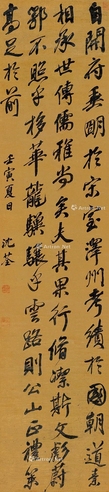 自開府奕朗於宋室澤州考績於國朝道素
相承世傳儒雅尚矣夫其果行脩潔斯文彪蔚
鄂不照乎栘華龍驥驤乎雲路則公山正禮策
高足於前
壬寅夏日 沈荃